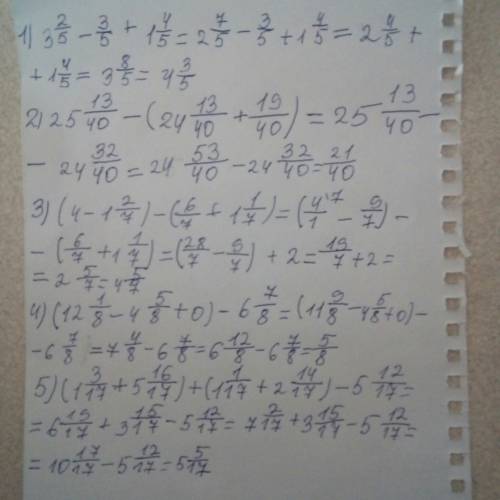 1) 3 2/5 - 3/5 + 1 4/5 = 2 7/5 - 3/5 + 1 4/5 = 2 4/5 +
+ 1 4/5 = 3 8/5 = 4 3/5
2) 25 13/40 - (24 13/40 + 19/40) = 25 13/40 -
- 24 32/40 = 24 53/40 - 24 32/40 = 21/40
3) (4 - 1 2/7) - (6/7 + 1 1/7) = (4/1 - 9/7) -
- (6/7 + 1 1/7) = (28/7 - 9/7) + 2 = 19/7 + 2 =
= 2 5/7 = 4 5/7
4) (12 1/8 - 4 5/8 + 0) - 6 7/8 = (11 9/8 - 4 5/8 + 0) -
- 6 7/8 = 7 4/8 - 6 7/8 = 6 12/8 - 6 7/8 = 5/8
5) (1 3/17 + 5 16/17) + (1 1/17 + 2 14/17) - 5 12/17 =
= 6 19/17 + 3 15/17 - 5 12/17 = 7 2/17 + 3 15/17 - 5 12/17 =
= 10 17/17 - 5 12/17 = 5 5/17